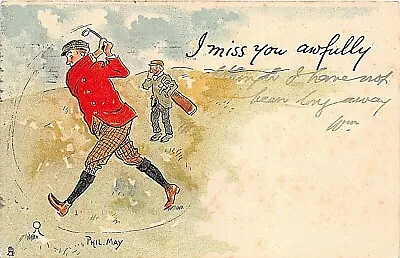 I miss you awfully
though I have not
been long away
Wm
PHIL. MAY